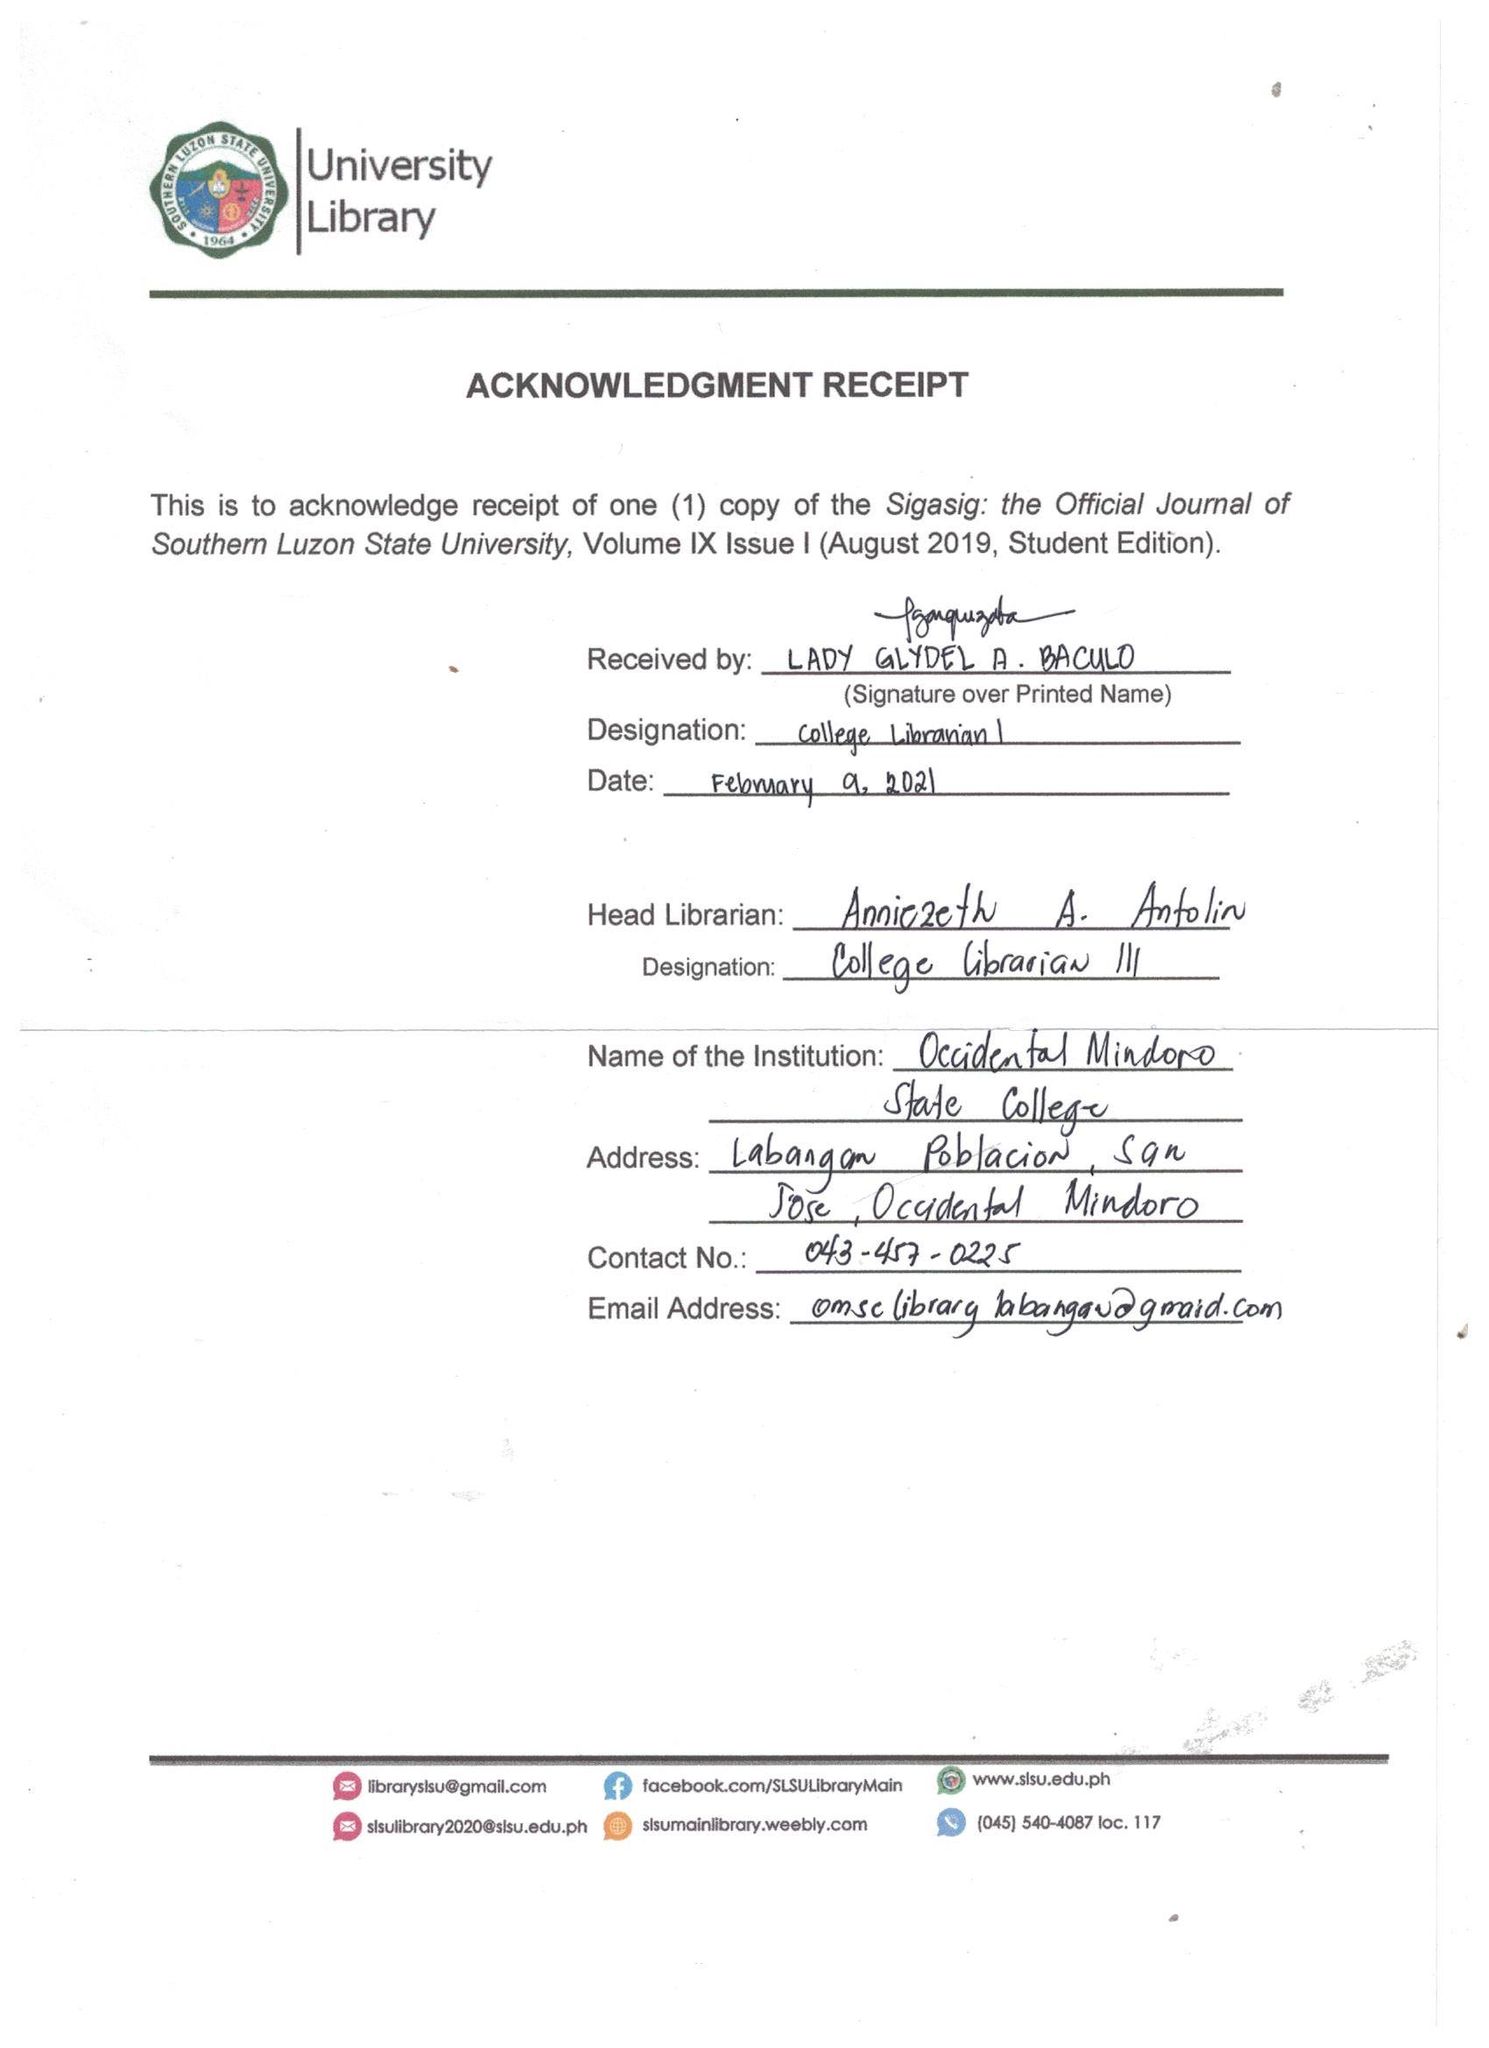 SOUTHERN LUZON STATE UNIVERSITY
1964
University
Library
ACKNOWLEDGMENT RECEIPT
This is to acknowledge receipt of one (1) copy of the Sigasig: the Official Journal of
Southern Luzon State University, Volume IX Issue I (August 2019, Student Edition).
Received by: LADY GLYDEL A. BACULO
(Signature over Printed Name)
Designation: College Librarian I
Date: February 9, 2021
Head Librarian: Anniezeth A. Antolin
Designation: College Librarian III
Name of the Institution: Occidental Mindoro
State College
Address: Labangan Poblacion, San
Jose, Occidental Mindoro
Contact No.: 043-457-0225
Email Address: omsclibrarylabangan@gmaid.com
libraryslsu@gmail.com facebook.com/SLSULibraryMain www.slsu.edu.ph
slsulibrary2020@slsu.edu.ph slsumainlibrary.weebly.com (045) 540-4087 loc. 117